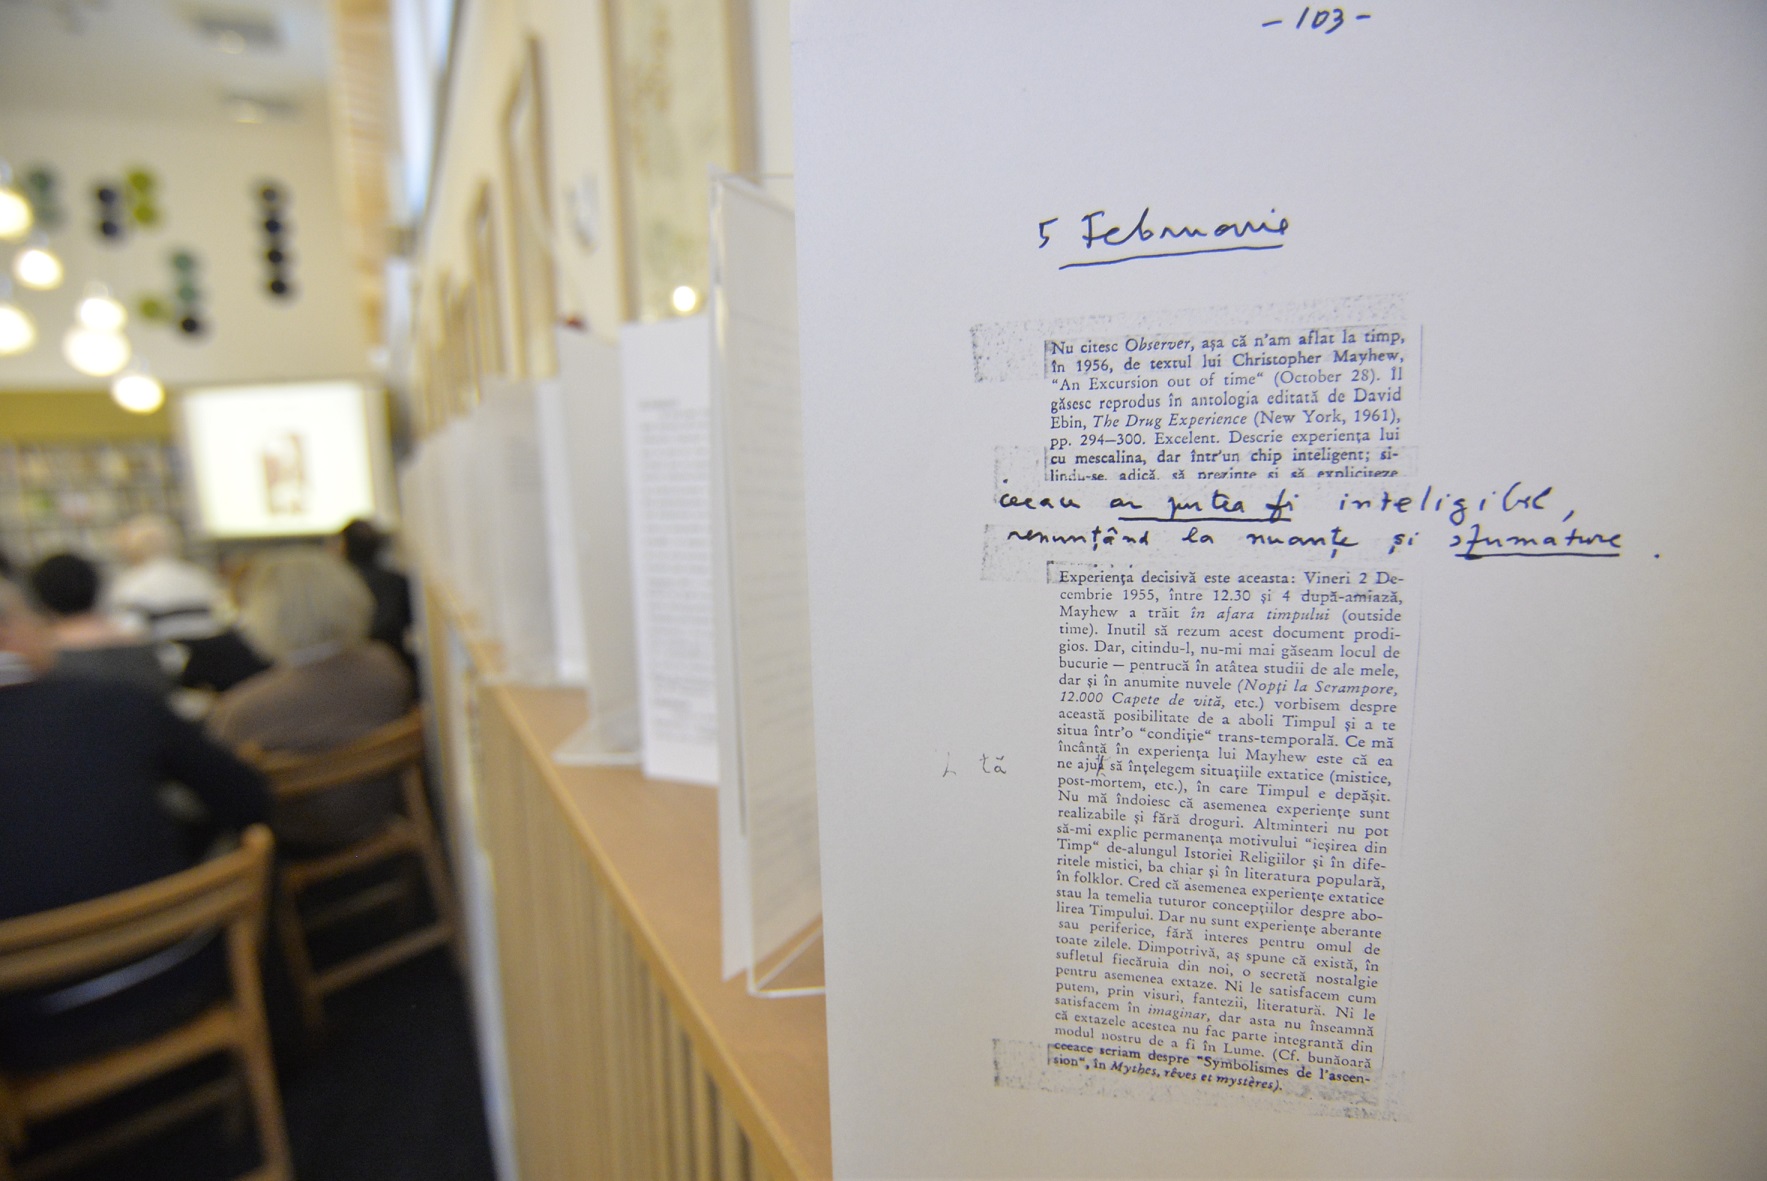 - 103 -
5 Februarie
Nu citesc Observer, aşa că n'am aflat la timp,
în 1956, de textul lui Christopher Mayhew,
"An Excursion out of time“ (October 28). Îl
găsesc reprodus în antologia editată de David
Ebin, The Drug Experience (New York, 1961),
pp. 294—300. Excelent. Descrie experienţa lui
cu mescalina, dar într'un chip inteligent; si-
lindu-se, adică, să prezinte şi să expliciteze
ceeace ar putea fi inteligibil,
renunţând la nuanţe şi sfumature.
Experienţa decisivă este aceasta: Vineri 2 De-
cembrie 1955, între 12.30 şi 4 după-amiază,
Mayhew a trăit în afara timpului (outside
time). Inutil să rezum acest document prodi-
gios. Dar, citindu-l, nu-mi mai găseam locul de
bucurie — pentrucă în atâtea studii de ale mele,
dar şi în anumite nuvele (Nopţi la Serampore,
12.000 Capete de vită, etc.) vorbisem despre
această posibilitate de a aboli Timpul şi a te
situa într'o "condiţie“ trans-temporală. Ce mă
încântă în experienţa lui Mayhew este că ea
tă ne ajută să înţelegem situaţiile extatice (mistice,
post-mortem, etc.), în care Timpul e depăşit.
Nu mă îndoiesc că asemenea experienţe sunt
realizabile şi fără droguri. Altminteri nu pot
să-mi explic permanenţa motivului "ieşirea din
Timp“ de-alungul Istoriei Religiilor şi în dife-
ritele mistici, ba chiar şi în literatura populară,
în folklor. Cred că asemenea experienţe extatice
stau la temelia tuturor concepţiilor despre abo-
lirea Timpului. Dar nu sunt experienţe aberante
sau periferice, fără interes pentru omul de
toate zilele. Dimpotrivă, aş spune că există, în
sufletul fiecăruia din noi, o secretă nostalgie
pentru asemenea extaze. Ni le satisfacem cum
putem, prin visuri, fantezii, literatură. Ni le
satisfacem în imaginar, dar asta nu înseamnă
că extazele acestea nu fac parte integrantă din
modul nostru de a fi în Lume. (Cf. bunăoară
ceeace scriam despre "Symbolismes de l'ascen-
sion“, în Mythes, rêves et mystères).